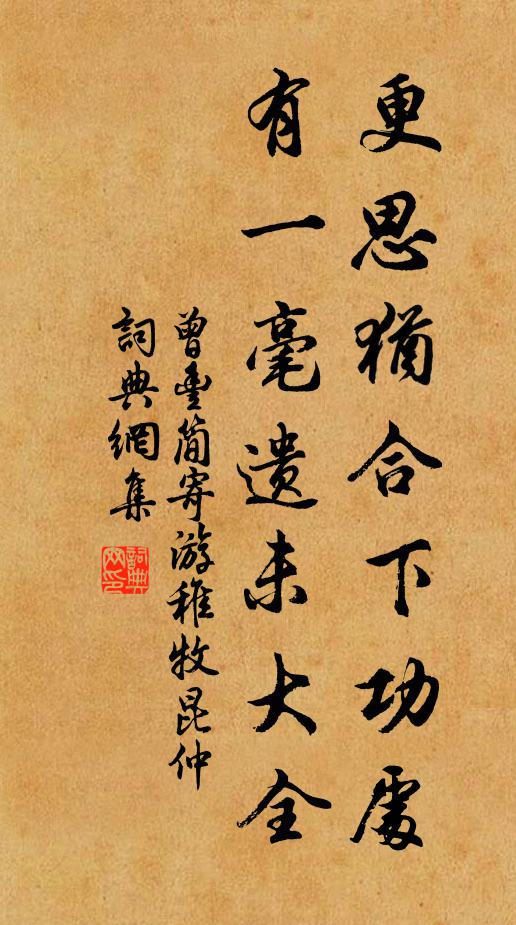 更思猶合下功處
有一毫遺未大全
曾豊簡寄游稚牧昆仲
詞典網集
詞典網印